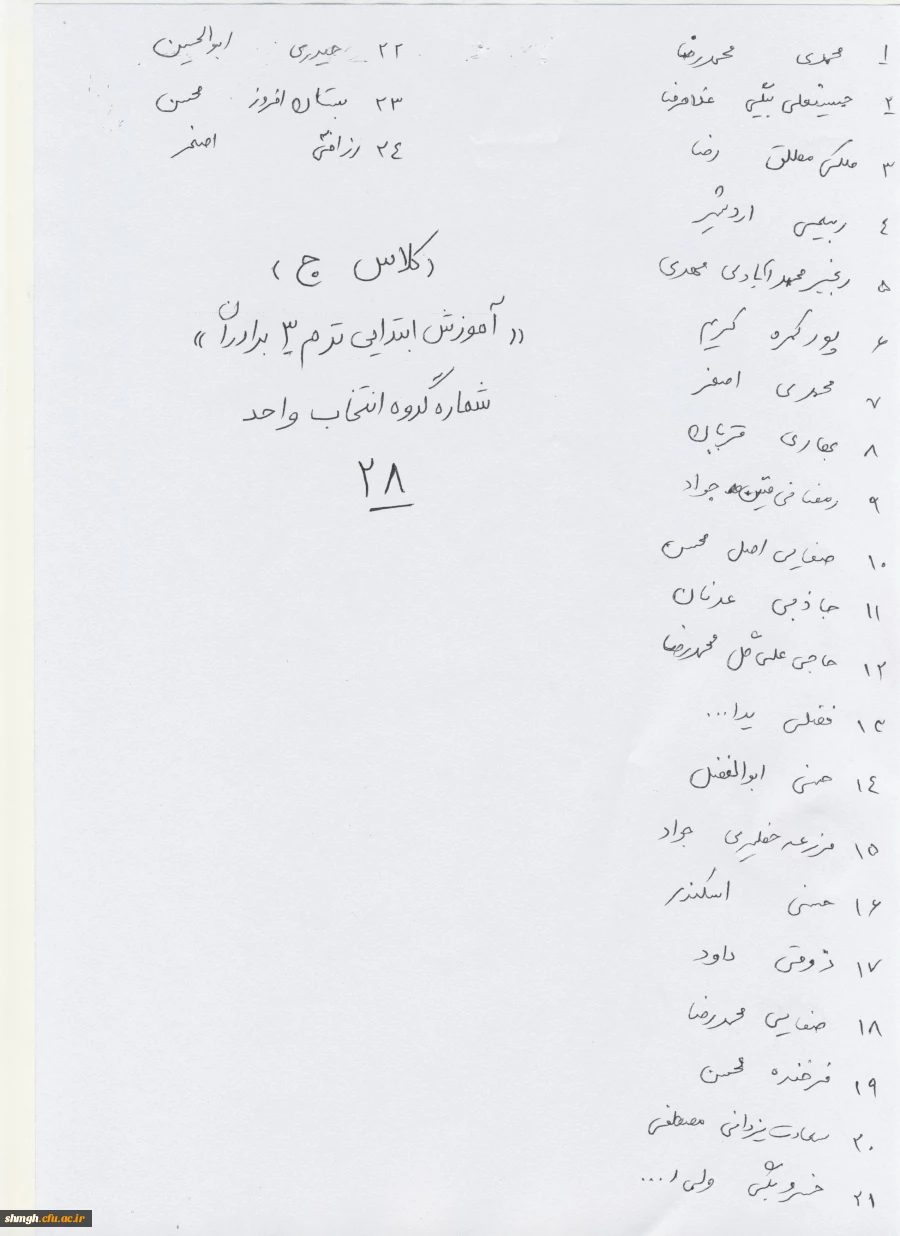 ۱ محمدی محمدرضا
۲ حسینعلی بیگی غلامرضا
۳ ملکی مطلق رضا
۴ رییسی اردشیر
۵ رنجبر محمدآبادی مهدی
۶ پور کمره کریم
۷ محمدی اصغر
۸ عماری قربان
۹ رمضانی جواد
۱۰ صفایی اصل محسن
۱۱ جاذبی عدنان
۱۲ حاجی علی محمدرضا
۱۳ فضلی یدا...
۱۴ حسنی ابوالفضل
۱۵ مزرعه جواد
۱۶ حسنی اسکندر
۱۷ ذوقی داود
۱۸ صفایی محمدرضا
۱۹ فرخنده محسن
۲۰ سعادت یزدانی مصطفی
۲۱ خسروبیگی ولی ا...
۲۲ حیدری ابوالحسین
۲۳ بستان افروز محسن
۲۴ رزاقی اصغر
(کلاس ج)
«آموزش ابتدایی ترم ۳ برادران»
شماره گروه انتخاب واحد
۲۸
shmgh.cfu.ac.ir